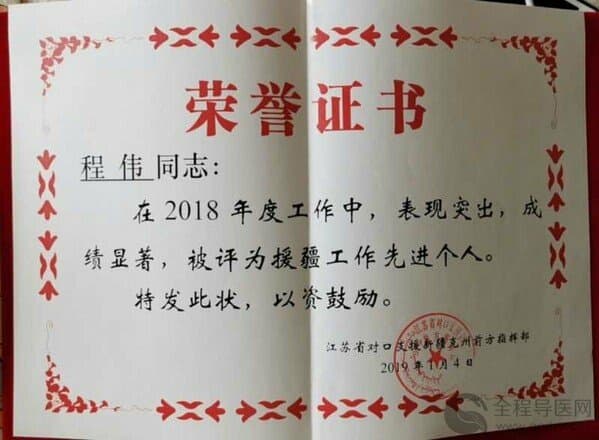 荣誉证书
程 伟 同志:
在 2018 年度工作中，表现突出，成
绩显著，被评为援疆工作先进个人。
特发此状，以资鼓励。
江苏省对口支援新疆克州前方指挥部
2019 年 1 月 4 日
全程导医网